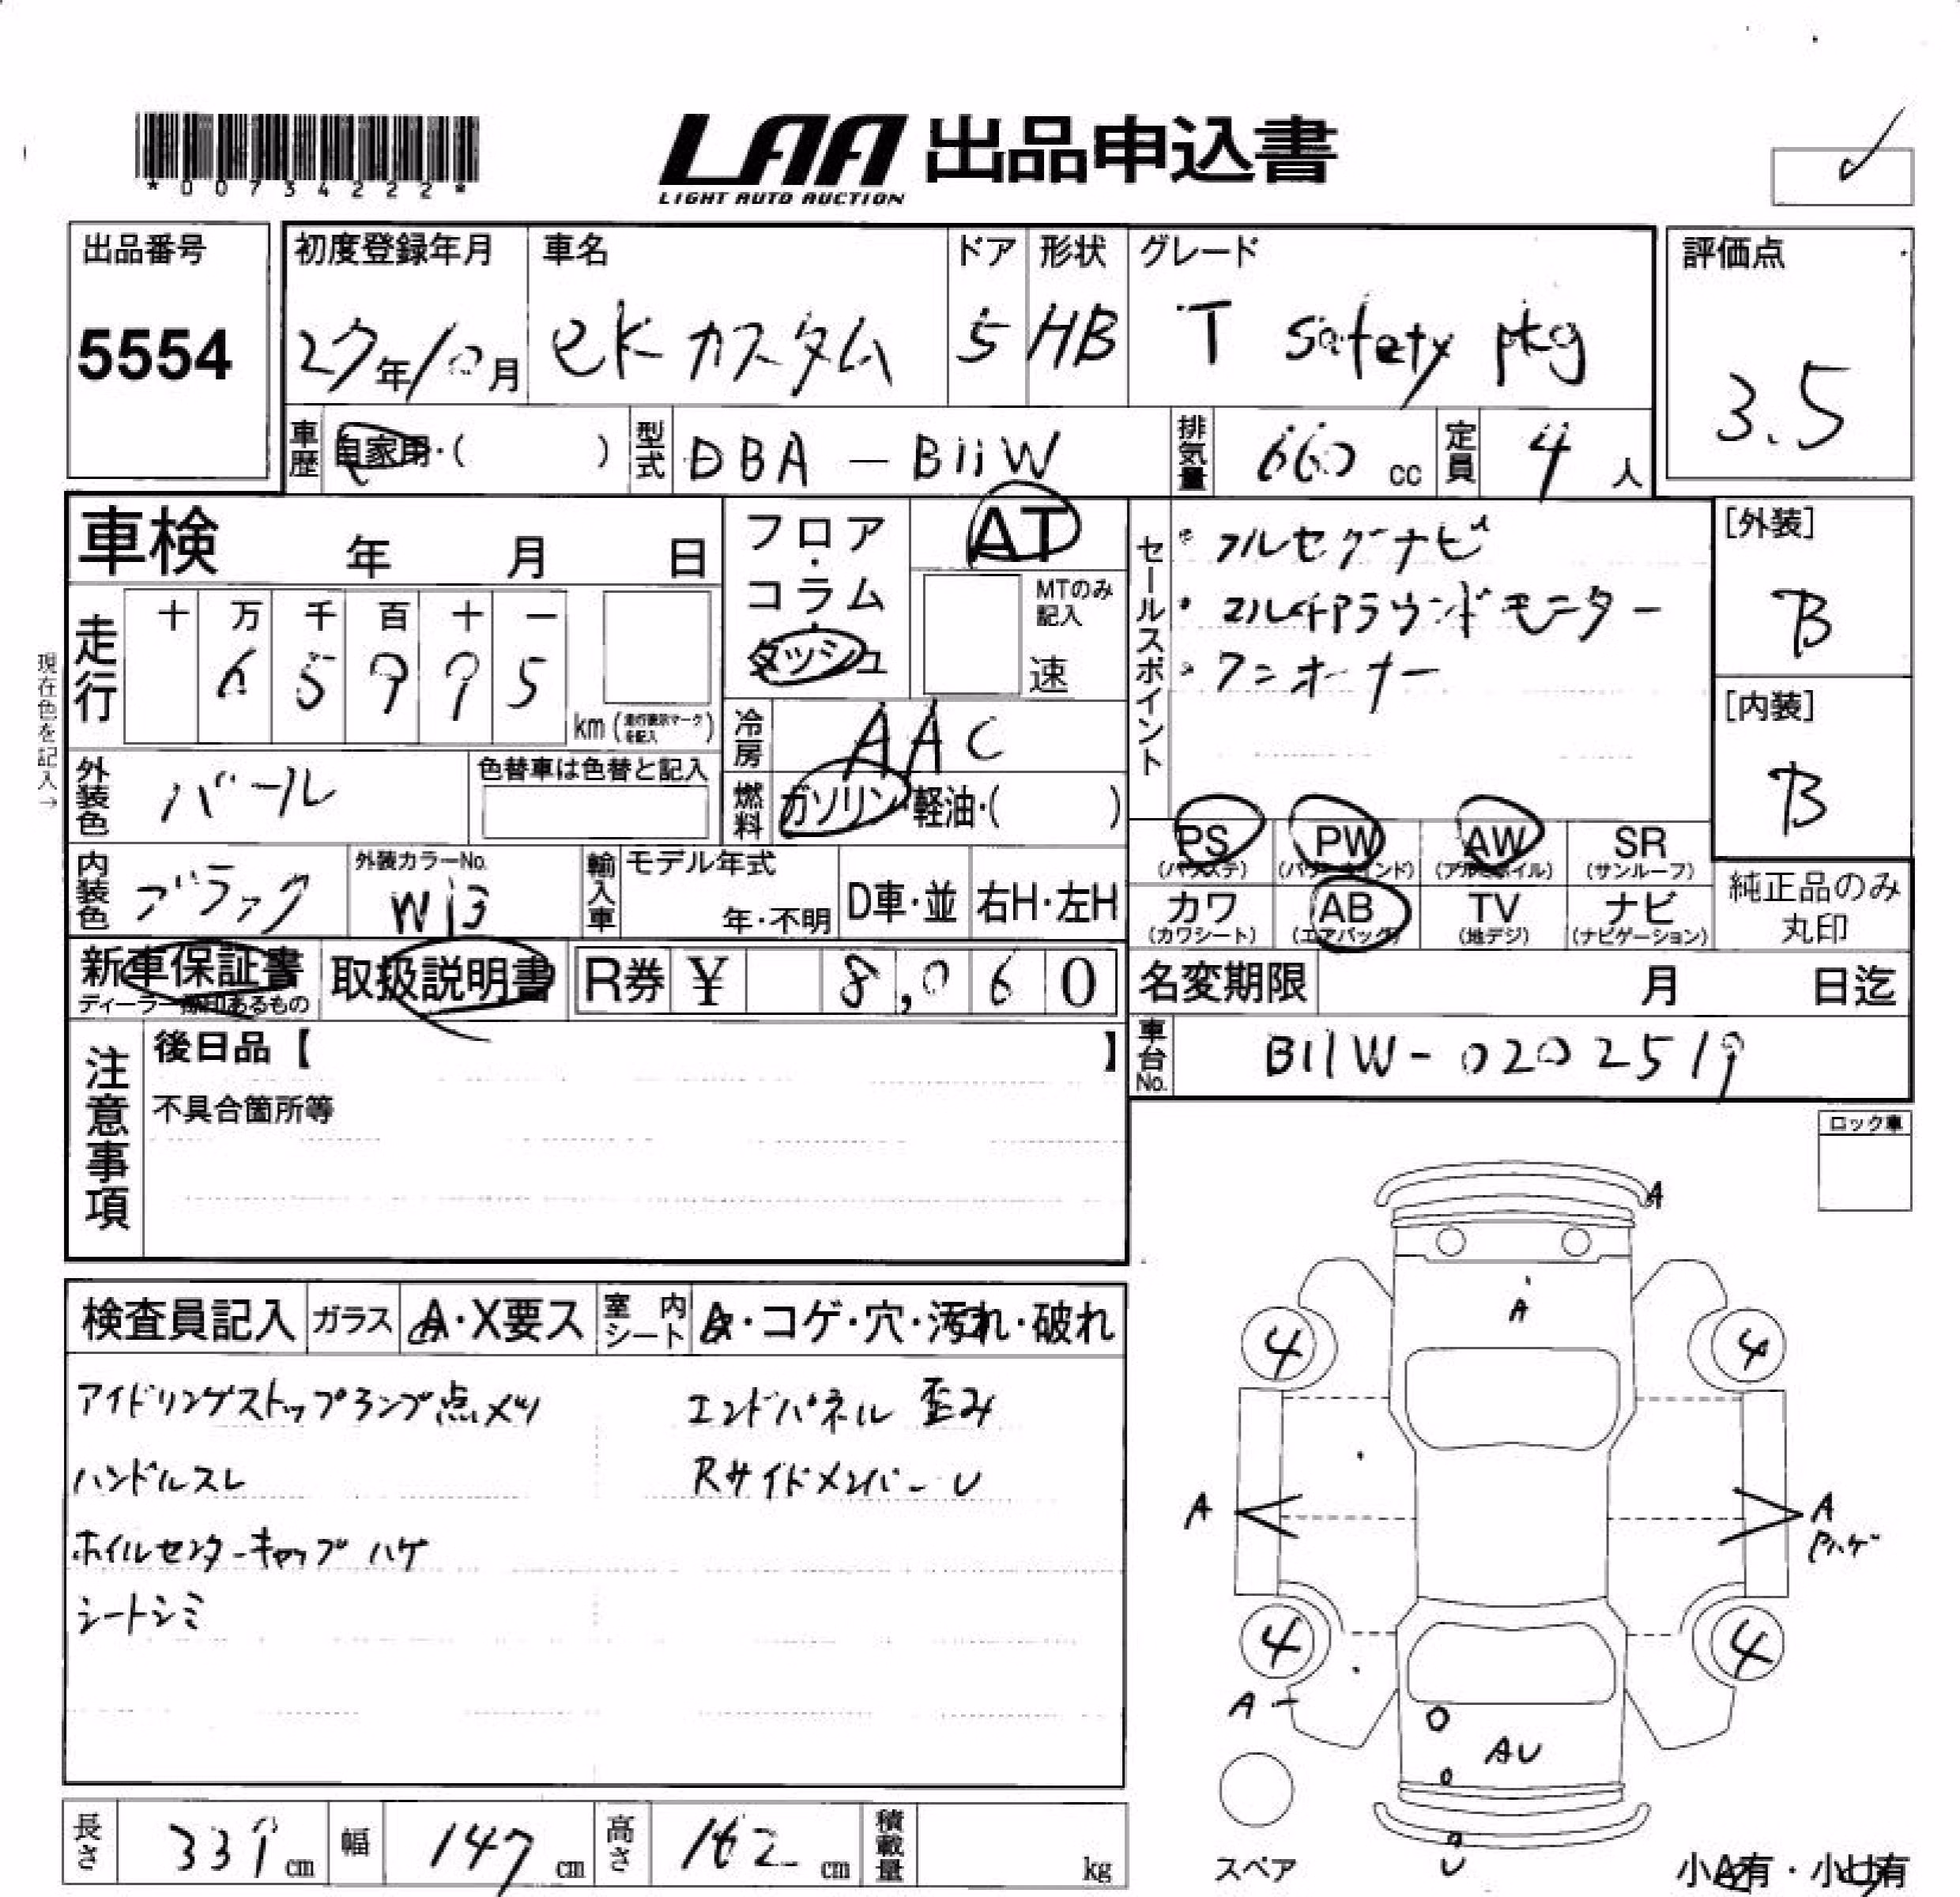 *00734222*
LAA 出品申込書
LIGHT AUTO AUCTION
出品番号
5554
初度登録年月
27年/10月
車名
eKカスタム
ドア
5
形状
HB
グレード
T safety pkg
評価点
3.5
車歴
自家用・( )
型式
DBA-B11W
排気量
660 cc
定員
4人
車検 年 月 日
フロア・コラム・ダッシュ
AT
MTのみ記入
速
セールスポイント
・フルセグナビ
・マルチアラウンドモニター
・ワンオーナー
[外装]
B
[内装]
B
現在色を記入→
走行
十 万 千 百 十 一
6 5 9 9 5
km (走行表示マークを記入)
冷房
AAC
外装色
パール
色替車は色替と記入
燃料
ガソリン・軽油・( )
内装色
ブラック
外装カラーNo.
W13
輸入車
モデル年式
年・不明
D車・並
右H・左H
PS (パワステ)
PW (パワーウインド)
AW (アルミホイル)
SR (サンルーフ)
カワ (カワシート)
AB (エアバッグ)
TV (地デジ)
ナビ (ナビゲーション)
純正品のみ丸印
新車保証書
取扱説明書
R券 ¥ 8,060
名変期限 月 日迄
車台No.
B11W-0202519
注意事項
後日品【 】
不具合箇所等
ロック車
検査員記入
ガラス
A・X要ス
室内シート
・コゲ・穴・汚れ・破れ
アイドリングストップランプ点メツ
エンドパネル 歪み
ハンドルスレ
RサイドメンバーU
ホイルセンターキャップハゲ
シートシミ
A
A
4
4
A
A
Pハゲ
4
4
A
AU
U
スペア
小A有・小U有
長さ
339 cm
幅
147 cm
高さ
162 cm
積載量
kg